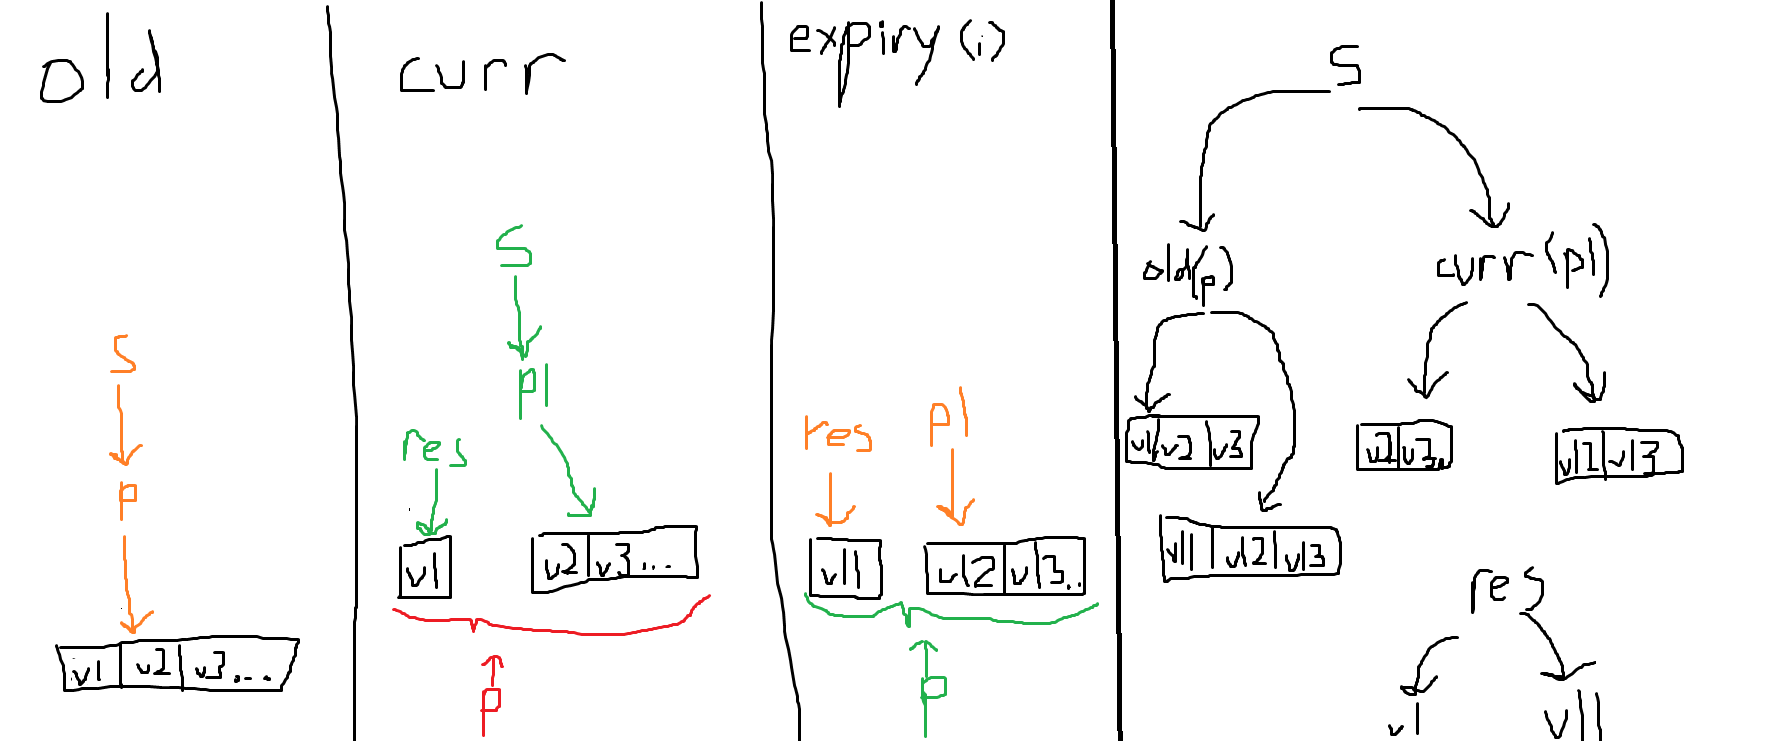 old
S
p
v1 v2 v3...
curr
S
p1
res
v1
v2 v3...
p
expiry(i)
res p1
v11
v12 v13..
p
S
old(p)
curr(p1)
v1 v2 v3
v2 v3..
v12 v13
v11 v12 v13
res
v1 v11